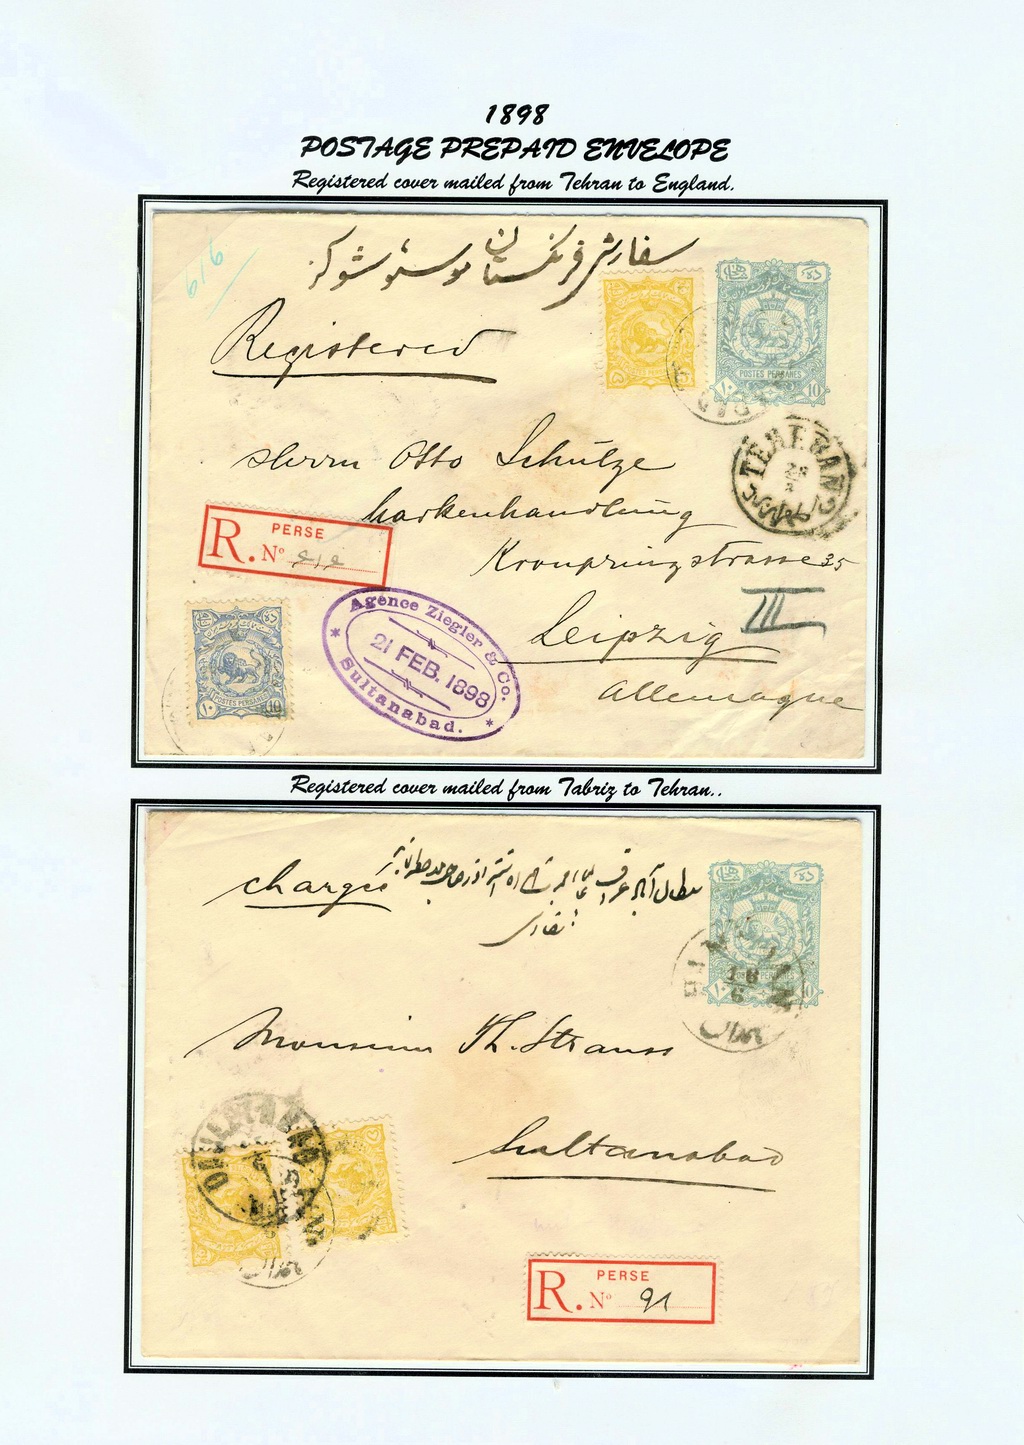 1898
POSTAGE PREPAID ENVELOPE
Registered cover mailed from Tehran to England.
616
سفارش فرنگستان
Registered
POSTES PERSANES
10
Herrn Otto Schülze
TEHERAN
Markenhandlung
R. PERSE
No 616
Kronprinzstrasse 35
III
Leipzig
Allemagne
POSTES PERSANES
10
Agence Ziegler & Co.
21 FEB. 1898
Sultanabad.
Registered cover mailed from Tabriz to Tehran..
chargée
سلطان آباد عراق
18
6
10
Monsieur Th. Strauss
Sultanabad
R. PERSE
No 91